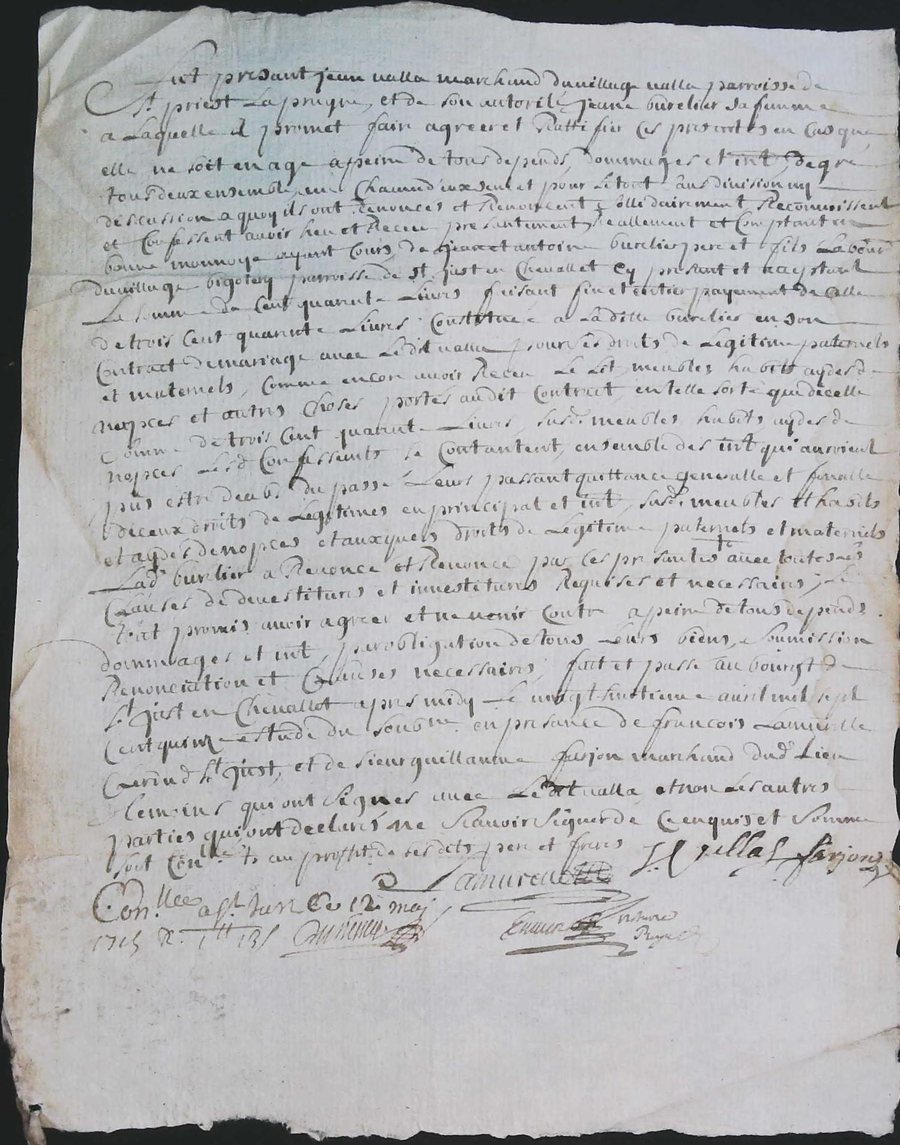 Fut presant jean valla marchand du village valla parroisse de
St priest Laprugne, et de son autorité jeane burelier sa femme
a Laquelle il promet faire agreer et Rattifier ces presentes en Cas que
elle ne soit en age a peine de tous depends, dommages et intt, de gre
tous deux ensemble, Chacun d'eux seul et pour Le tout sans division ny
descussion a quoy ils ont Renonces et Renoncent sollidairement Reconnoissent
et Confessent avoir heu et Receu presantement, Reallement et Comptant en
bonne monnoye ayant Cours, de et antoine burelier pere et fils Labour
du village bigotery parroisse de St just en Chevallet Cy presant et acceptant
La somme de Cent quarente Livres faisant fin et entier payement de Celle
de trois Cent quarente Livres Constituée a Ladite burelier en son
Contract de mariage avec Ledit valla pour ses droits de Legitime paternels
et maternels, Comme encore avoir Receu Le Lit, meubles habits aydes de
nopces et autres Choses portes audit Contract, en telle sorte que dicelle
somme de trois Cent quarente Livres, susd. meubles habits aydes de
nopces Lesd. Confessants se Contantent, ensemble des intt qui auroient
peus estre deubs du passé Leurs passant quittance generalle et finalle
diceux droits de Legitimes en principal et intt, susd. meubles et habits
et aydes de nopces, et auxquels droits de Legitime paternels et maternels
Lad. burelier a Renonce et Renonce par ces presantes avec toutes Les
Clauses de devestitures et investitures Requises et necessaires,
tout promis avoir agreer et ne venir Contre a peine de tous depends
dommages et intt, par obligation de tous Leurs biens, soumission
Renonciation et Clauses necessaires, fait et passé au bourg de
St just en Chevallet apres midy Le vingt huitieme avril mil sept
Cent quinze estude du soubne en presance de francois Lamurette
Clerc dud St just, et de sieur guillaume farjon marchand dud. Lieu
temoins qui ont signes avec Ledit valla, et non Les autres
parties qui ont declarés ne sçavoir signer de Ce enquis et sommé
soit Conllé ts au proffit de sesdits pere et freres
valla farjon
Lamurette
Conllee a St Just Ce 12 may
1715 R.